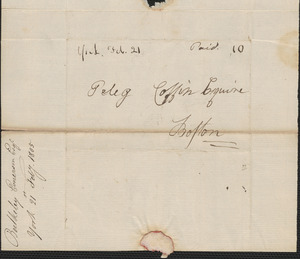 York, Feb. 21 Paid 10
Peleg Coffin Esquire
Boston
Bulkeley Emerson Esq
York 21 Feby. 1805